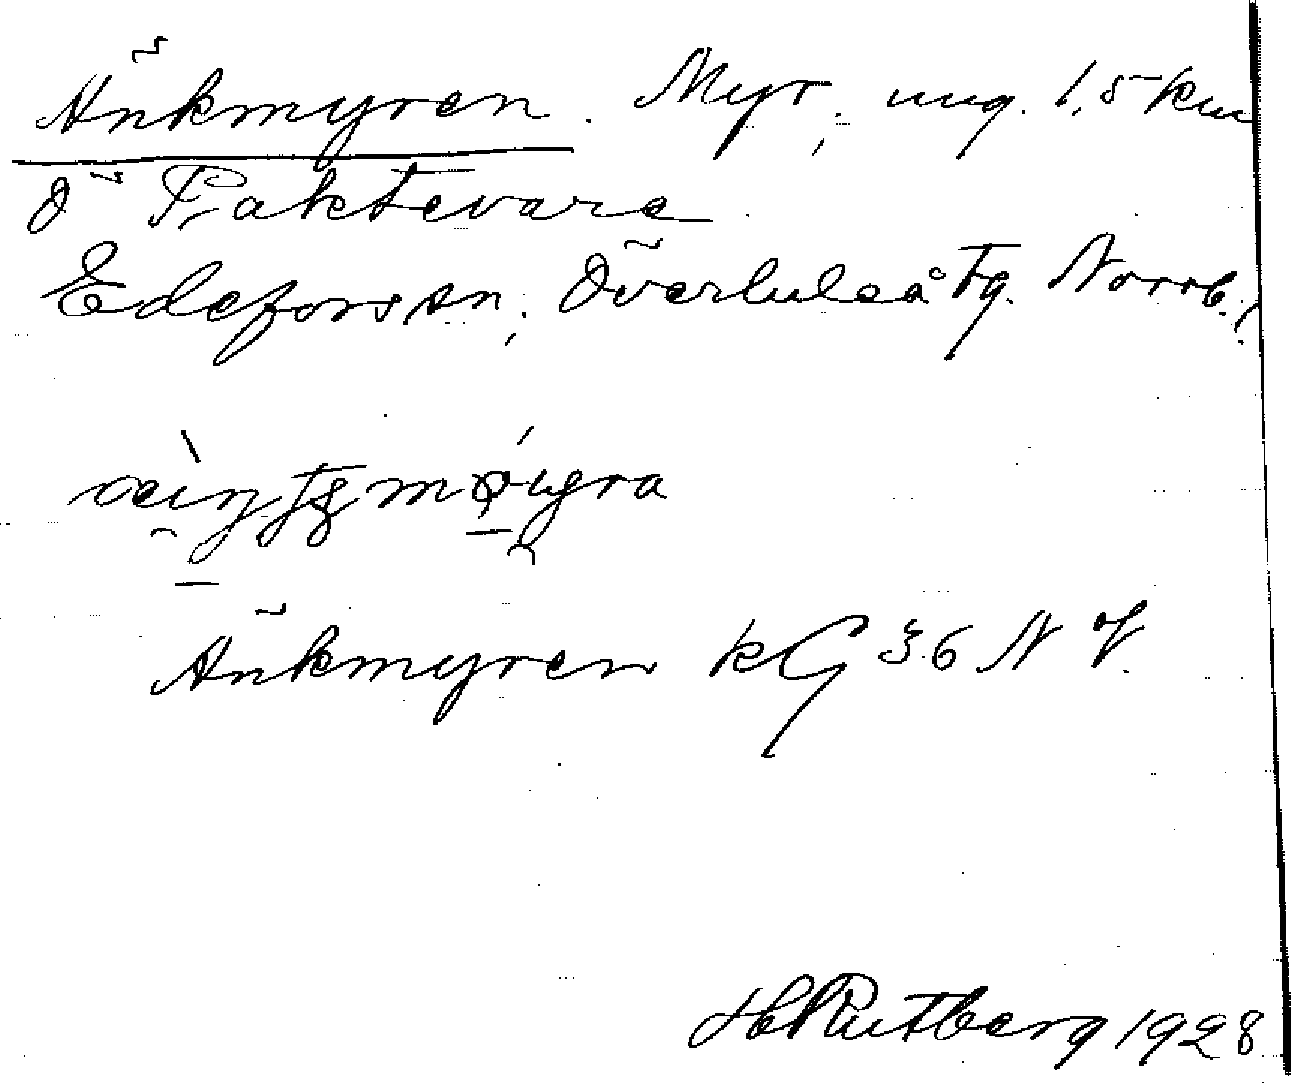 Änkmyren. Myr, ung. 1,5 km
Ö Paktevara
Edefors sn, Överluleå tg. Norrb. l
Änkmyren kG 36 NV
H Rutberg 1928